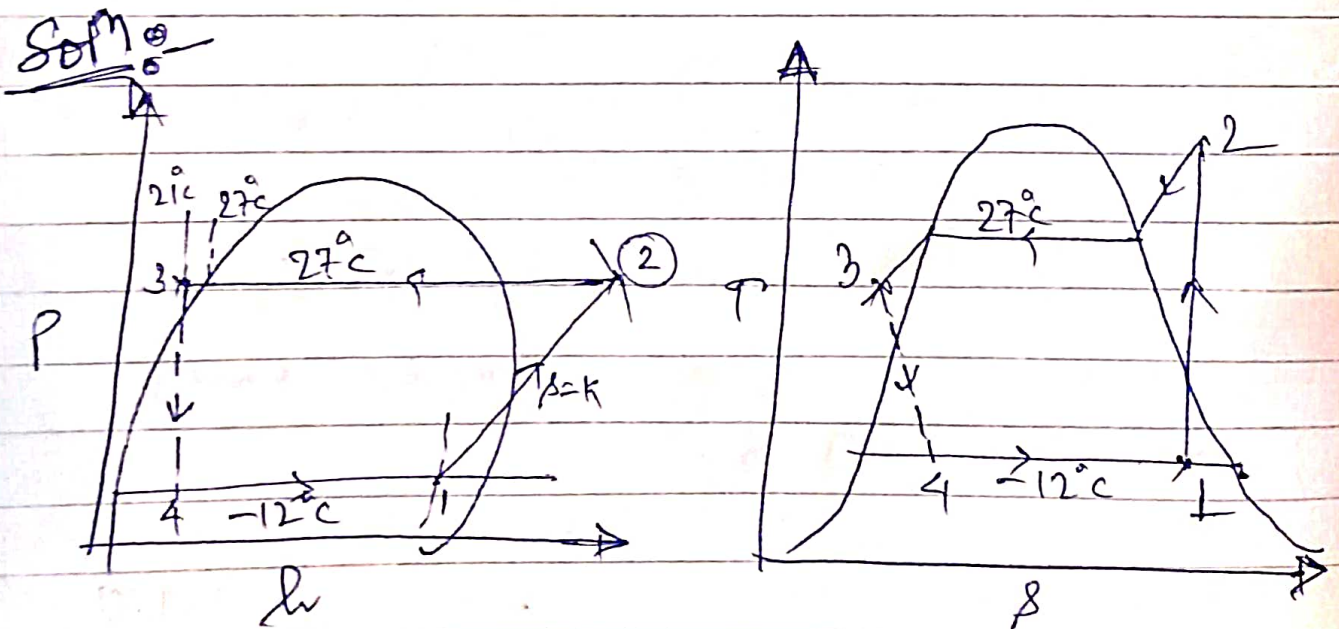 Soln :-
21°c
27°c
27°c
3
2
P
s=k
4
-12°c
1
h
2
27°c
3
T
4
-12°c
1
s